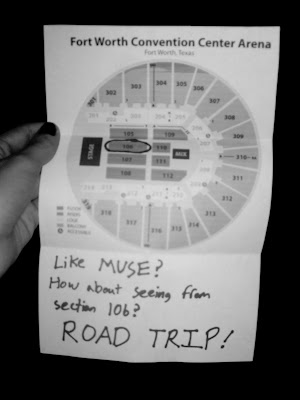 Fort Worth Convention Center Arena
Fort Worth, Texas
302
303
304
305
306
307
308
309
310
311
312
313
314
315
316
317
318
STAGE
105
106
107
108
109
110
111
112
MIX
FLOOR
Like MUSE?
How about seeing from
section 106?
ROAD TRIP!